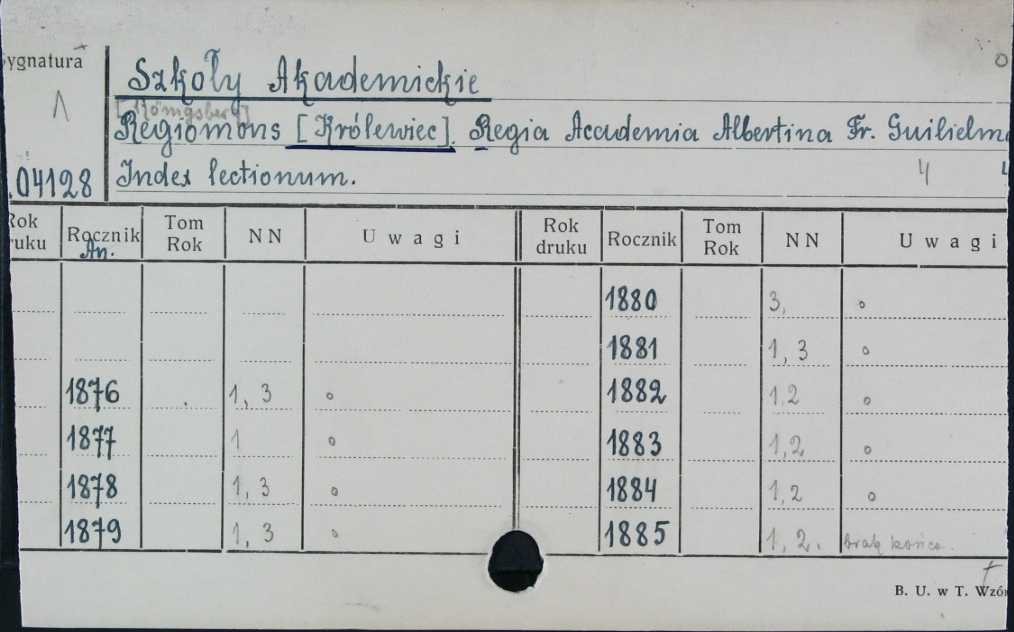 ygnatura
Szkoły Akademickie
[Königsberg]
Regiomons [Królewiec]. Regia Academia Albertina Fr. Guilielm
.04128 Index lectionum. 4
Rok druku Rocznik An. Tom Rok NN Uwagi Rok druku Rocznik Tom Rok NN Uwagi
1880 3,
1881 1, 3
1876 1, 3 1882 1,2
1877 1 1883 1,2
1878 1, 3 1884 1,2
1879 1, 3 1885 1, 2. brak końca.
B. U. w T. Wzór